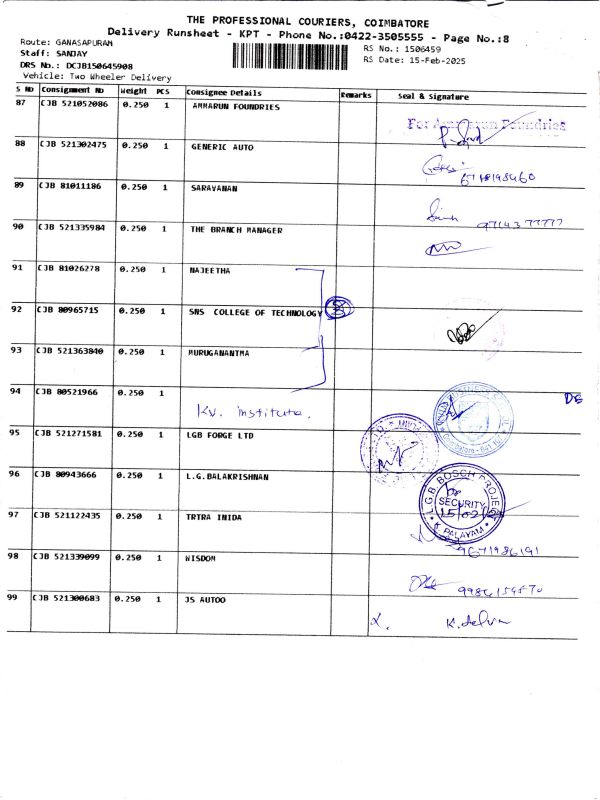 THE PROFESSIONAL COURIERS, COIMBATORE
Delivery Runsheet - KPT - Phone No.:0422-3505555 - Page No.:8
Route: GANASAPURAM
RS No.: 1506459
Staff: SANJAY
RS Date: 15-Feb-2025
DRS No.: DCJB150645908
Vehicle: Two Wheeler Delivery
S No Consignment No Weight PCS Consignee Details Remarks Seal & Signature
87 CJB 521052086 0.250 1 AMMARUN FOUNDRIES
For Ammarun Foundries
88 CJB 521302475 0.250 1 GENERIC AUTO
89 CJB 81011186 0.250 1 SARAVANAN
90 CJB 521335984 0.250 1 THE BRANCH MANAGER
91 CJB 81026278 0.250 1 NAJEETHA
92 CJB 80965715 0.250 1 SNS COLLEGE OF TECHNOLOGY
93 CJB 521363840 0.250 1 MURUGANANTMA
94 CJB 80521966 0.250 1 Kv. institute.
95 CJB 521271581 0.250 1 LGB FORGE LTD
96 CJB 80943666 0.250 1 L.G.BALAKRISHNAN
L.G.B. BOSCH PROJE
SECURITY
15/02/25
K. PALAYAM
97 CJB 521122435 0.250 1 TRTRA INIDA
9671986191
98 CJB 521339099 0.250 1 WISDOM
99 CJB 521300683 0.250 1 JS AUTOO